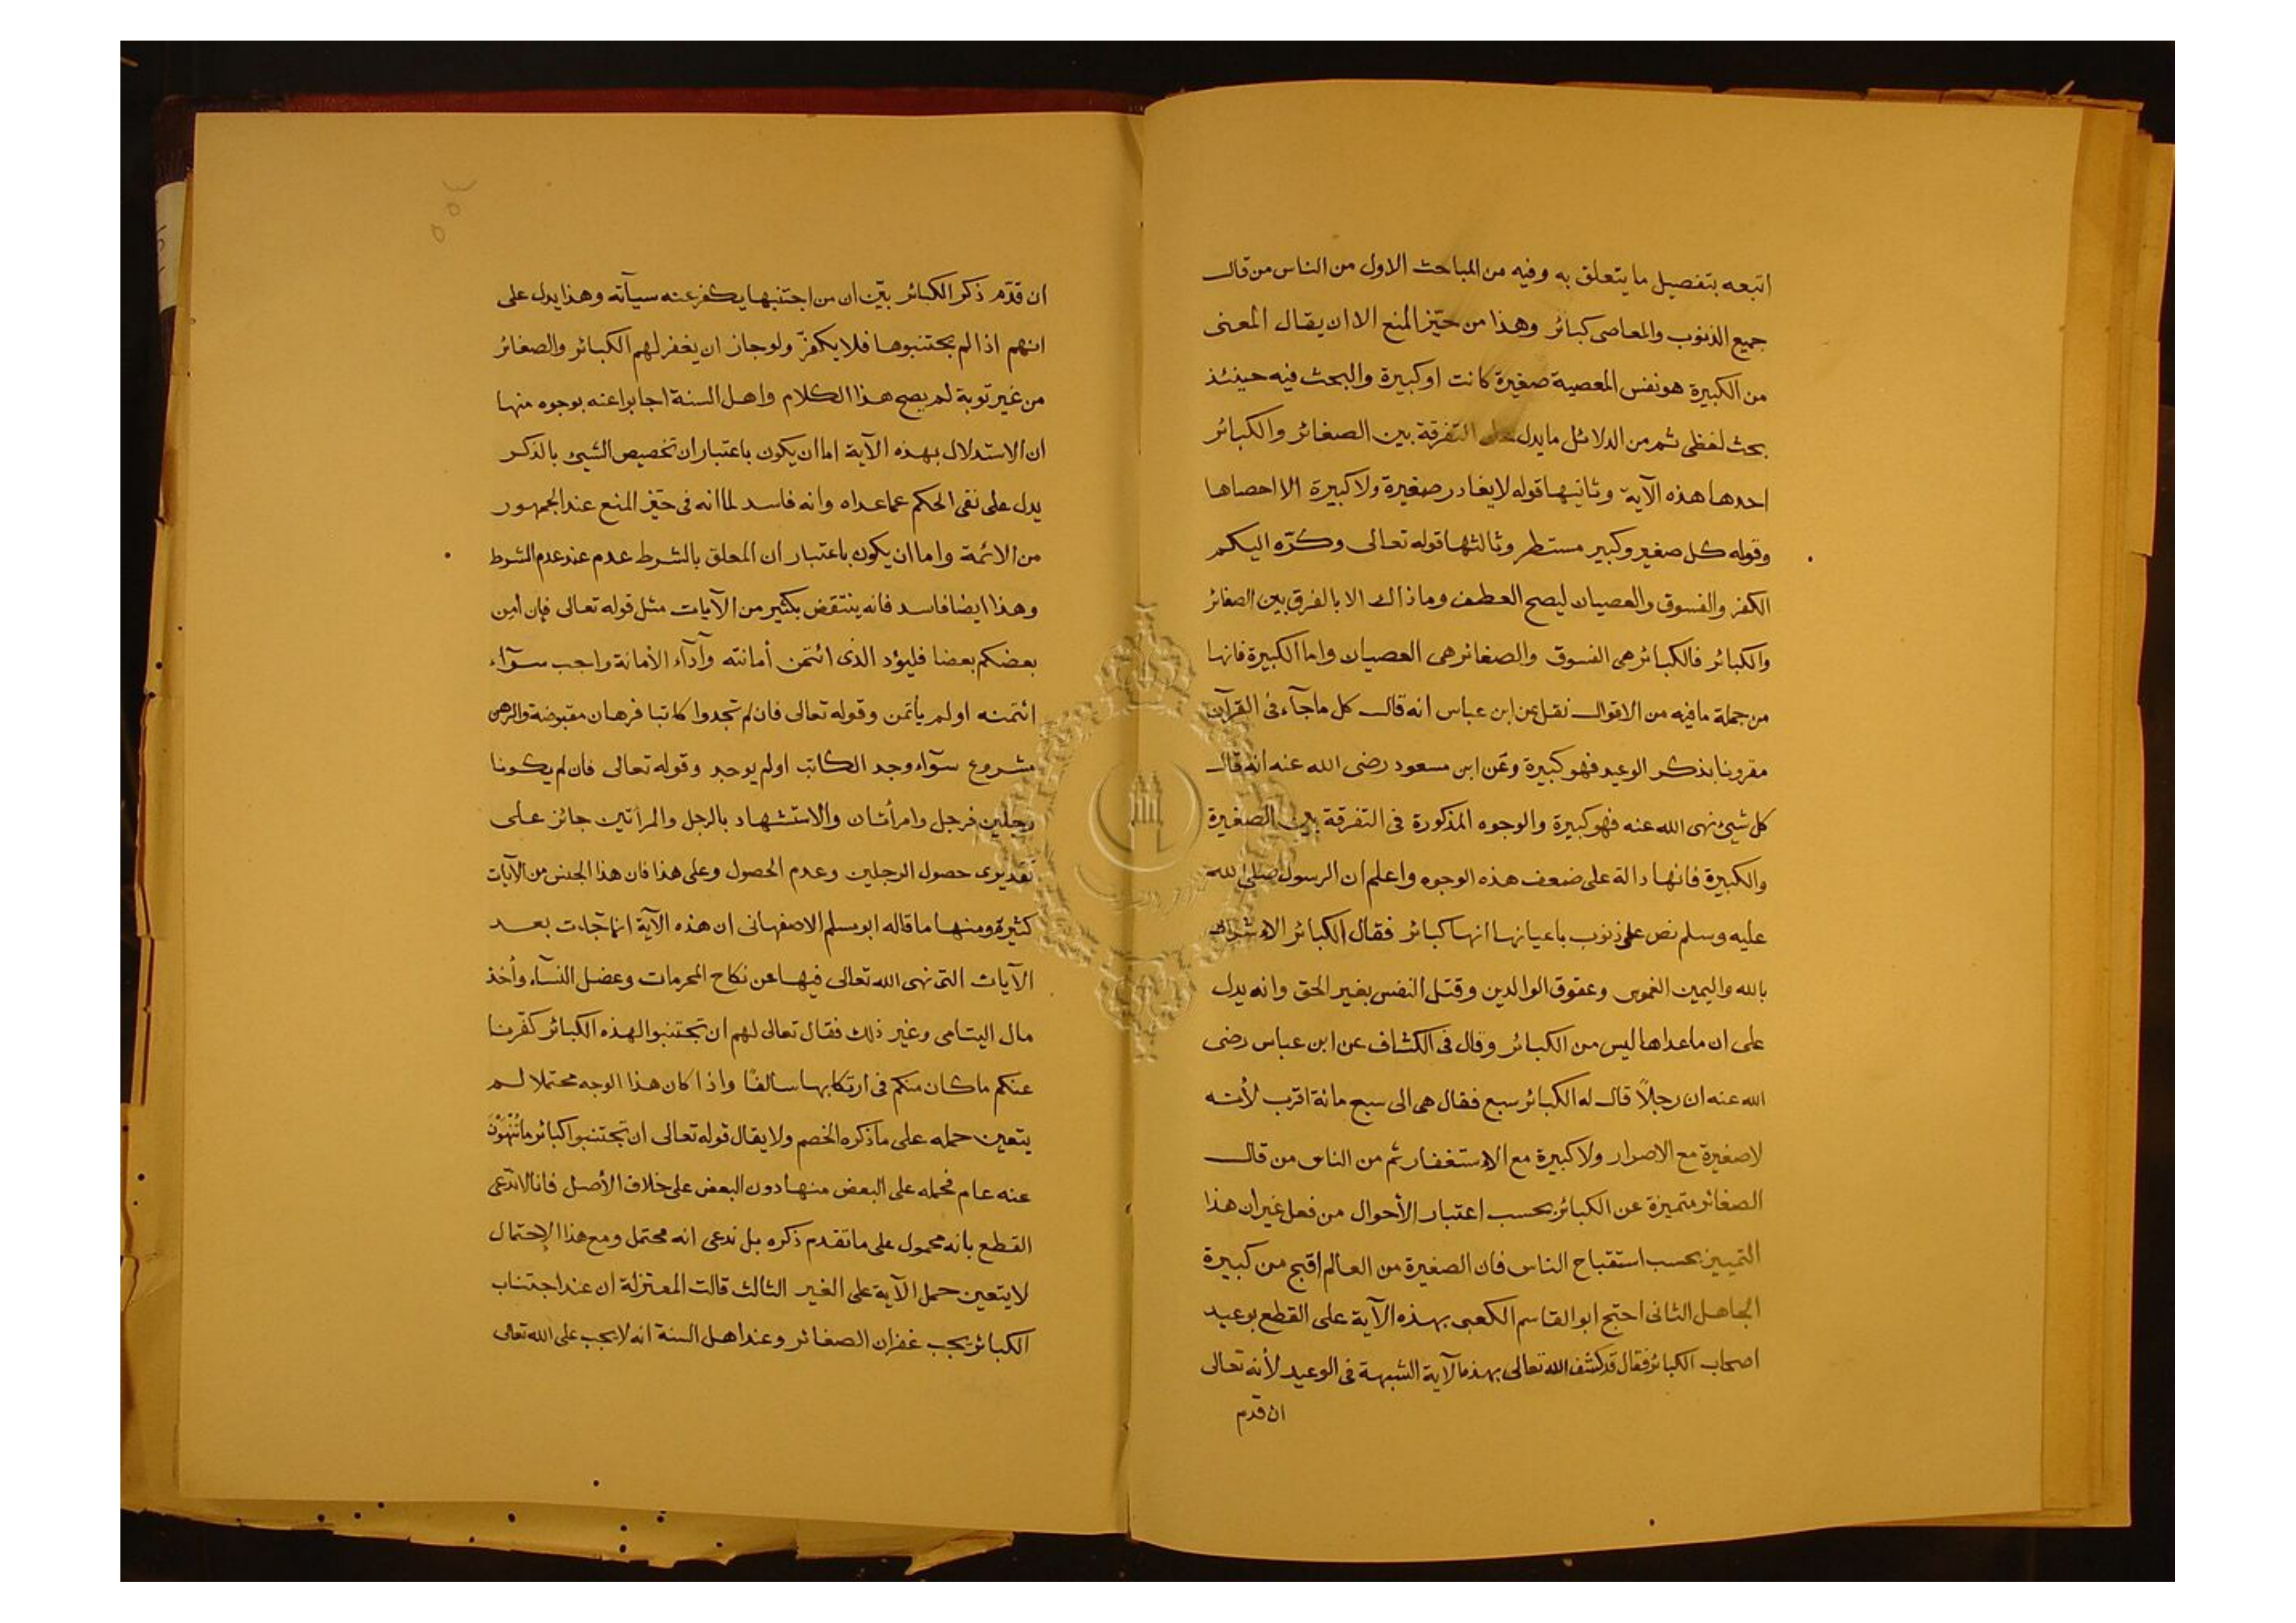 اتبعه بتفصيل ما يتعلق به وفيه من المباحث الاول من الناس من قال
جميع الذنوب والمعاصى كبائر وهذا من حيّز المنع الا ان يقال المعنى
من الكبيرة هو نفس المعصية صغيرة كانت او كبيرة والبحث فيه حينئذ
بحث لفظى ثم من الدلائل ما يدل على التفرقة بين الصغائر والكبائر
احدها هذه الآية وثانيها قوله لا يغادر صغيرة ولا كبيرة الا احصاها
وقوله كل صغير وكبير مستطر وثالثها قوله تعالى وكرّه اليكم
الكفر والفسوق والعصيان ليصح العطف وما ذاك الا بالفرق بين الصغائر
والكبائر فالكبائر هى الفسوق والصغائر هى العصيان واما الكبيرة فانها
من جملة ما فيه من الاقوال نقل عن ابن عباس انه قال كل ما جآء فى القرآن
مقرونا بذكر الوعيد فهو كبيرة وعن ابن مسعود رضى الله عنه انه قال
كل شيئ نهى الله عنه فهو كبيرة والوجوه المذكورة فى التفرقة بين الصغيرة
والكبيرة فانها دالة على ضعف هذه الوجوه واعلم ان الرسول صلى الله
عليه وسلم نص على ذنوب باعيانها انها كبائر فقال الكبائر الاشراك
بالله واليمين الغموس وعقوق الوالدين وقتل النفس بغير الحق وانه يدل
على ان ما عداها ليس من الكبائر وقال فى الكشاف عن ابن عباس رضى
الله عنه ان رجلاً قال له الكبائر سبع فقال هى الى سبع مائة اقرب لأنه
لا صغيرة مع الاصرار ولا كبيرة مع الاستغفار ثم من الناس من قال
الصغائر متميزة عن الكبائر بحسب اعتبار الأحوال من فعل غير ان هذا
التمييز بحسب استقباح الناس فان الصغيرة من العالم اقبح من كبيرة
الجاهل الثانى احتج ابو القاسم الكعبى بهذه الآية على القطع بوعيد
اصحاب الكبائر فقال قد كشف الله تعالى بهذه الآية الشبهة فى الوعيد لأنه تعالى
ان قدم
ان قدّم ذكر الكبائر بيّن ان من اجتنبها يكفر عنه سيآته وهذا يدل على
انهم اذا لم يجتنبوها فلا يكفرّ ولو جاز ان يغفر لهم الكبائر والصغائر
من غير توبة لم يصح هذا الكلام واهل السنة اجابوا عنه بوجوه منها
ان الاستدلال بهذه الآية اما ان يكون باعتبار ان تخصيص الشيئ بالذكر
يدل على نفى الحكم عما عداه وانه فاسد لما انه فى حيّز المنع عند الجمهور
من الائمة واما ان يكون باعتبار ان المعلق بالشرط عدم عند عدم الشرط
وهذا ايضا فاسد فانه ينتقض بكثير من الآيات مثل قوله تعالى فإن أمِن
بعضكم بعضا فليؤد الذى ائتمن أمانته وأدآء الأمانة واجب سوآء
ائتمنه او لم يأتمن وقوله تعالى فان لم تجدوا كاتبا فرهان مقبوضة والرهن
مشروع سوآء وجد الكاتب او لم يوجد وقوله تعالى فان لم يكونا
رجلين فرجل وامرأتان والاستشهاد بالرجل والمرأتين جائز على
تقديرى حصول الرجلين وعدم الحصول وعلى هذا فان هذا الجنس من الآيات
كثيرة ومنها ما قاله ابو مسلم الاصفهانى ان هذه الآية انما جآءت بعد
الآيات التى نهى الله تعالى فيها عن نكاح المحرمات وعضل النسآء وأخذ
مال اليتامى وغير ذلك فقال تعالى لهم ان تجتنبوا لهذه الكبائر كفّرنا
عنكم ما كان منكم فى ارتكابها سالفًا واذا كان هذا الوجه محتملا لم
يتعين حمله على ما ذكره الخصم ولا يقال قوله تعالى ان تجتنبوا كبائر ما تُنْهَوْنَ
عنه عام فحمله على البعض منها دون البعض على خلاف الأصل فانا لا ندّعى
القطع بانه محمول على ما تقدم ذكره بل ندعى انه محتمل ومع هذا الإحتمال
لا يتعين حمل الآية على الغير الثالث قالت المعتزلة ان عند اجتناب
الكبائر يجب غفران الصغائر وعند اهل السنة انه لا يجب على الله تعالى